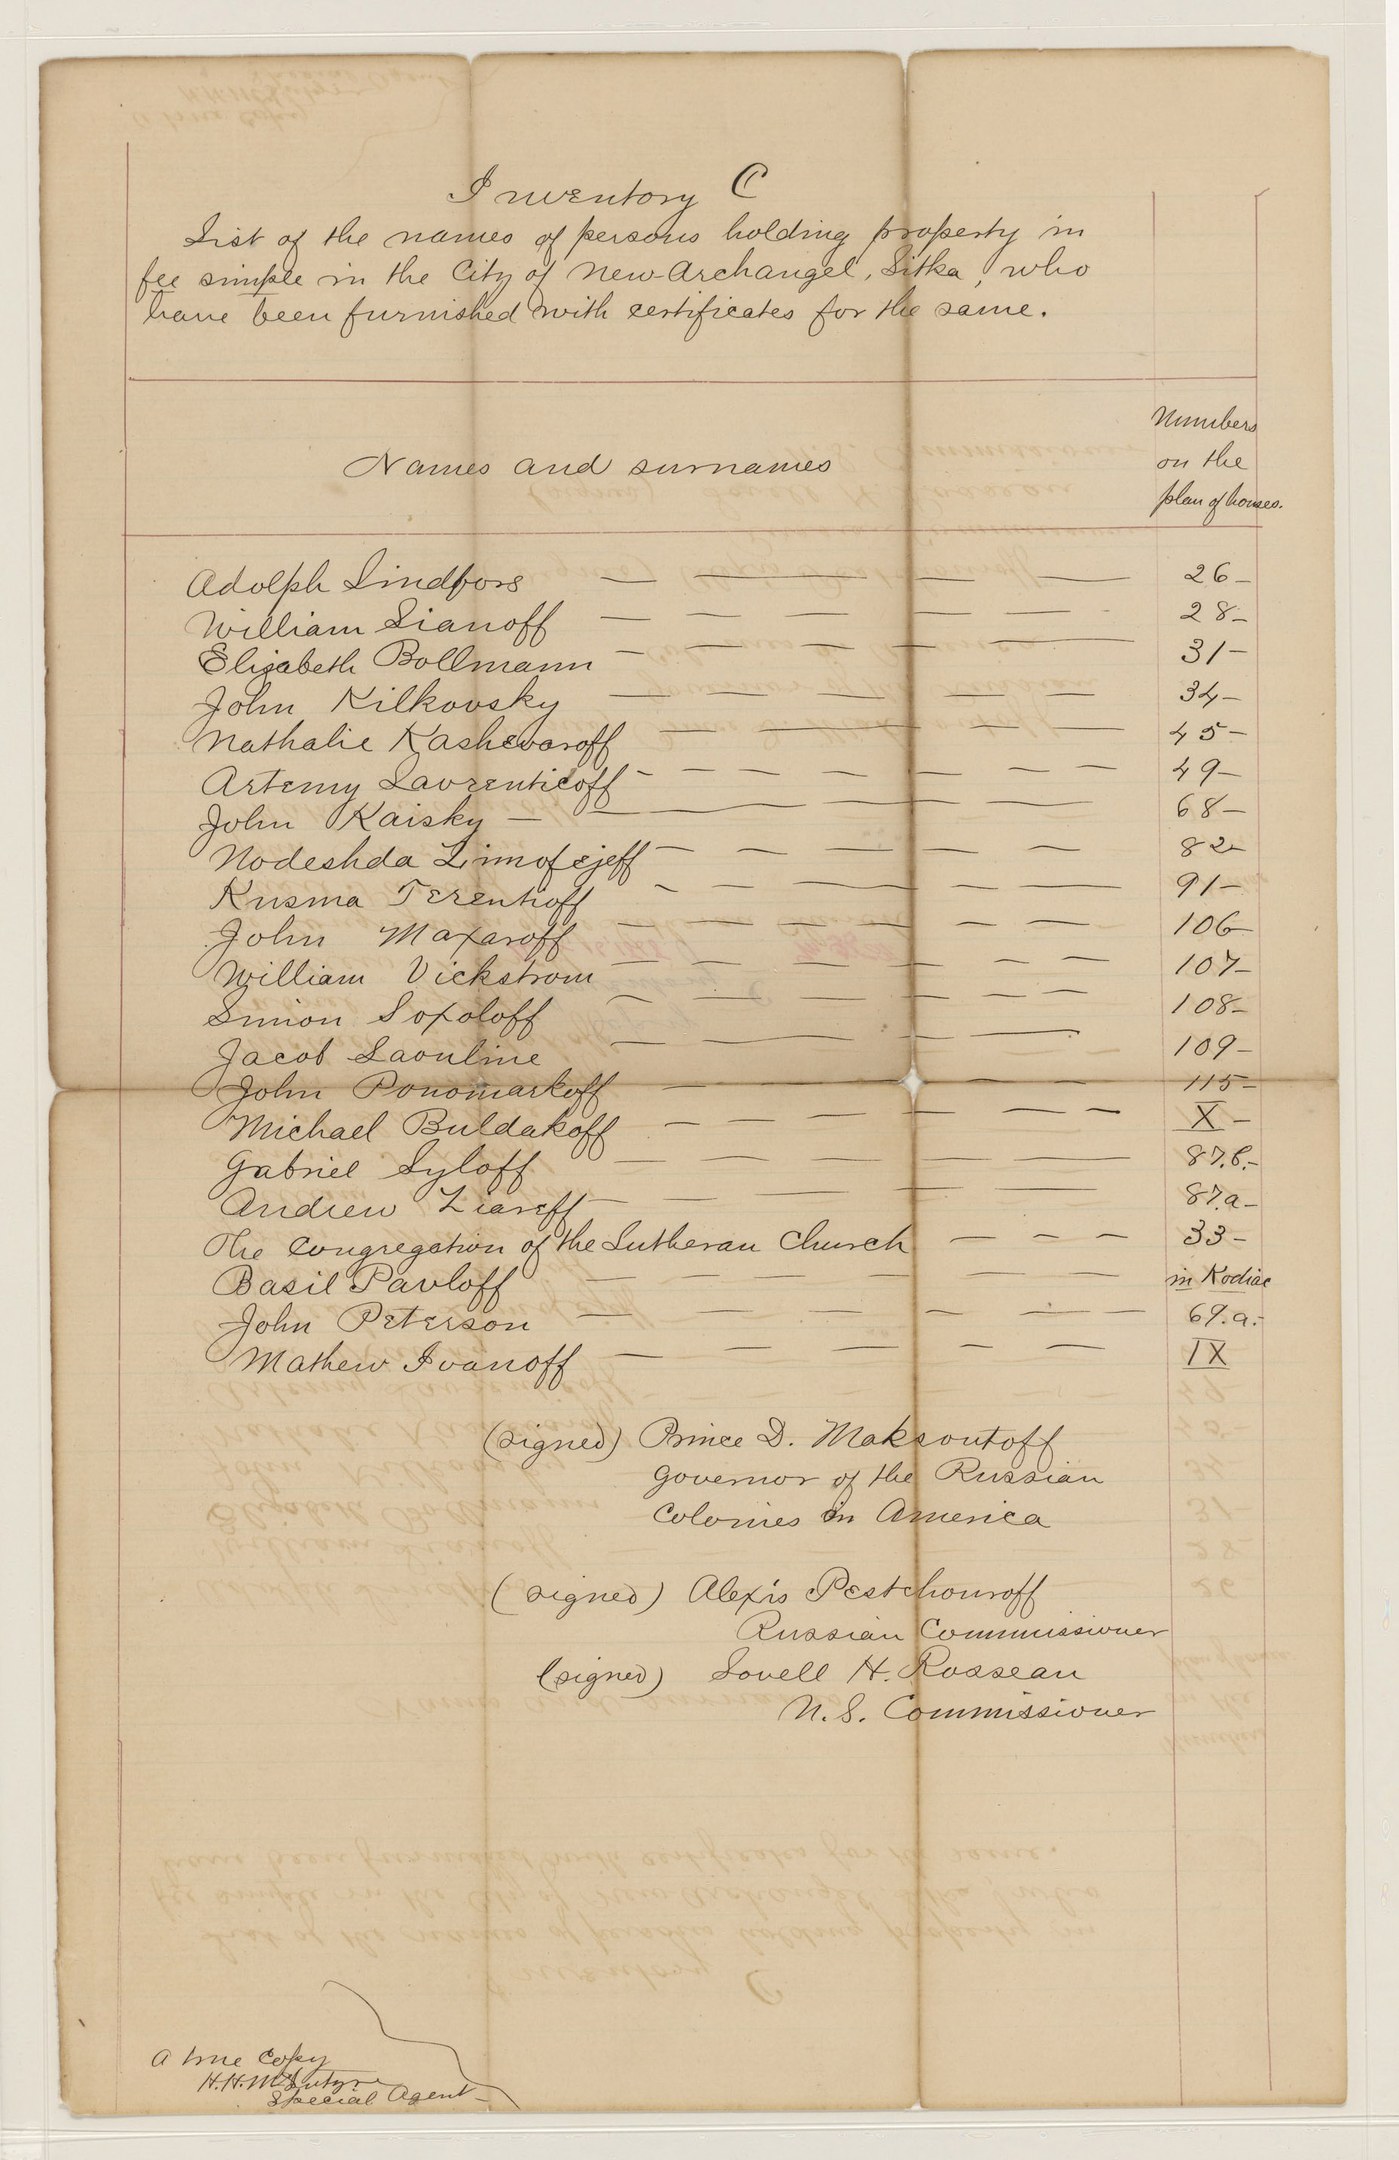 Inventory C
List of the names of persons holding property in
fee simple in the City of New-Archangel, Sitka, who
have been furnished with certificates for the same.
Numbers
on the
plan of houses.
Names and surnames
Adolph Lindfors — — — — 26-
William Lianoff — — — — — — 28-
Elizabeth Bollmann — — — — — 31-
John Kilkovsky — — — — — — 34-
Nathalie Kashevaroff — — — — — 45-
Artemy Lavrentieoff - — — — — — — 49-
John Kaisky — — — — — — 68-
Nodeshda Timofejeff — — — — — — 82-
Kusma Terentioff — — — — — 91-
John Maxaroff — — — — — — 106-
William Vickstrom — — — — — — — 107-
Simon Soxoloff — — — — — — 108-
Jacob Laouline — — — — — 109-
John Ponomarkoff — — — — — 115-
Michael Buldakoff — — — — — — X -
Gabriel Syloff — — — — — — 87.b.-
Andrew Liareff — — — — — 87.a-
The Congregation of the Lutheran Church — — — 33-
Basil Pavloff — — — — — — in Kodiac
John Peterson — — — — — — 69.a.-
Mathew Ivanoff — — — — — — IX
(signed) Prince D. Maksoutoff
Governor of the Russian
Colonies in America
(signed) Alexis Pestchouroff
Russian Commissioner
(signed) Lovell H. Rosseau
U.S. Commissioner
A true Copy
H.H. McIntyre
Special Agent-